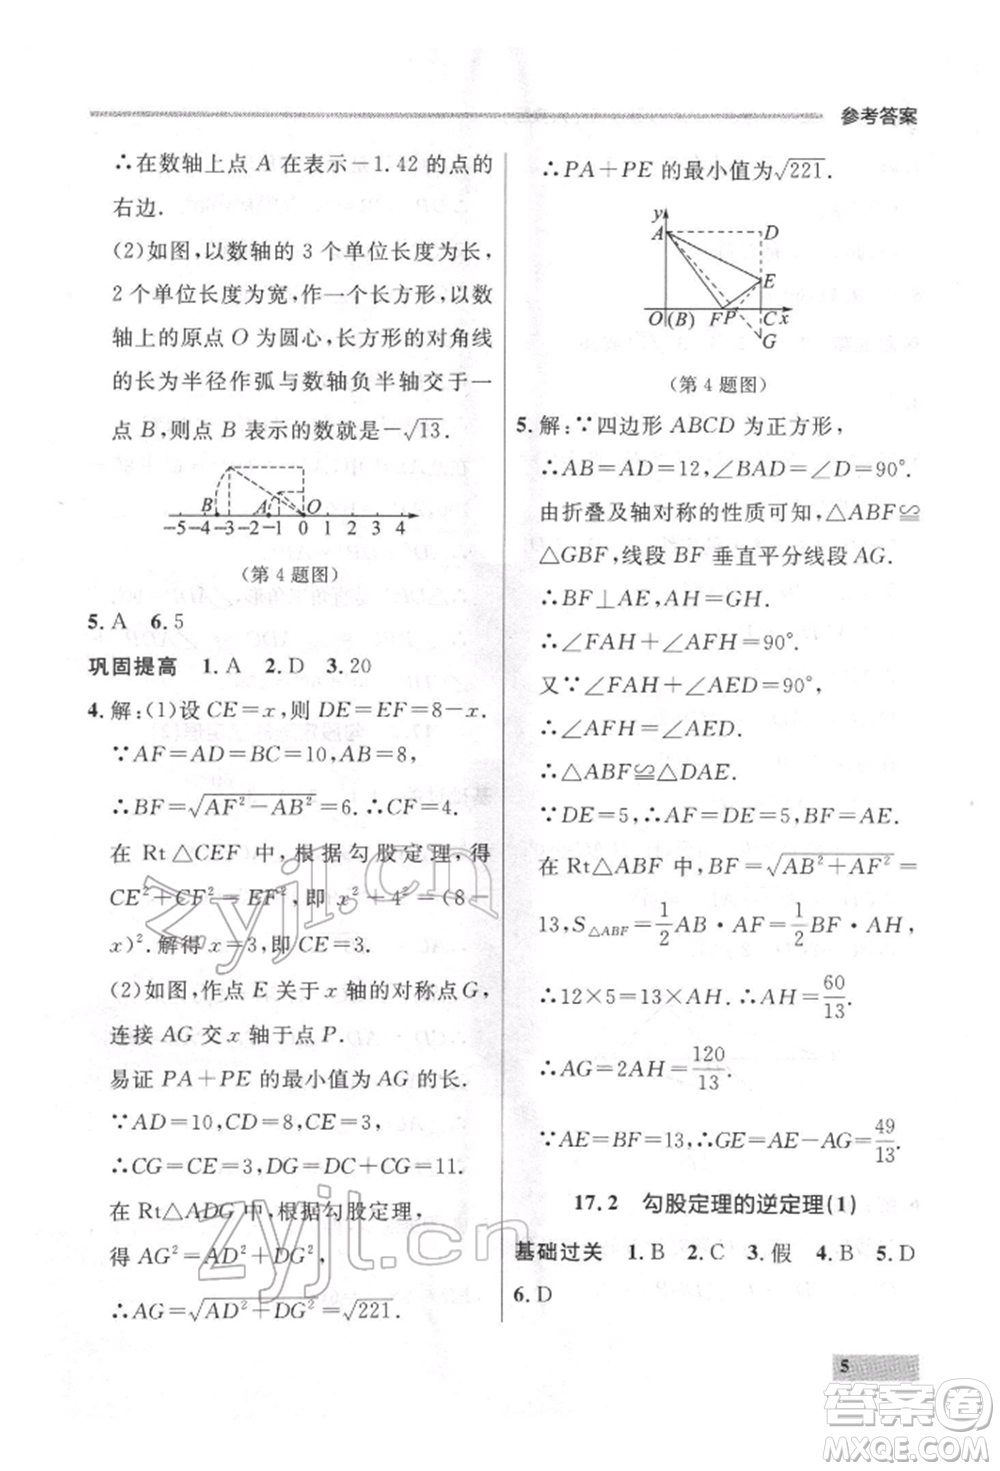 参考答案
∴在数轴上点 A 在表示－1.42 的点的
右边.
(2)如图,以数轴的 3 个单位长度为长,
2 个单位长度为宽,作一个长方形,以数
轴上的原点 O 为圆心,长方形的对角线
的长为半径作弧与数轴负半轴交于一
点 B,则点 B 表示的数就是－√13.
B A O
-5-4-3-2-1 0 1 2 3 4
(第 4 题图)
5.A 6.5
巩固提高 1.A 2.D 3.20
4.解:(1)设 CE=x,则 DE=EF=8-x.
∵AF=AD=BC=10,AB=8,
∴BF=√(AF²-AB²)=6.∴CF=4.
在 Rt△CEF 中,根据勾股定理,得
CE²+CF²=EF²,即 x²+4²=(8-
x)².解得 x=3,即 CE=3.
(2)如图,作点 E 关于 x 轴的对称点G,
连接 AG 交 x 轴于点 P.
易证 PA+PE 的最小值为 AG 的长.
∵AD=10,CD=8,CE=3,
∴CG=CE=3,DG=DC+CG=11.
在 Rt△ADG 中,根据勾股定理,
得 AG²=AD²+DG²,
∴AG=√(AD²+DG²)=√221.
∴PA+PE 的最小值为√221.
y
A D
E
O (B) F P C x
G
(第 4 题图)
5.解:∵四边形 ABCD 为正方形,
∴AB=AD=12,∠BAD=∠D=90°.
由折叠及轴对称的性质可知,△ABF≌
△GBF,线段 BF 垂直平分线段 AG.
∴BF⊥AE,AH=GH.
∴∠FAH+∠AFH=90°.
又∵∠FAH+∠AED=90°,
∴∠AFH=∠AED.
∴△ABF≌△DAE.
∵DE=5,∴AF=DE=5,BF=AE.
在 Rt△ABF 中,BF=√(AB²+AF²)=
13,S△ABF=1/2 AB·AF=1/2 BF·AH,
∴12×5=13×AH.∴AH=60/13.
∴AG=2AH=120/13.
∵AE=BF=13,∴GE=AE-AG=49/13.
17.2 勾股定理的逆定理(1)
基础过关 1.B 2.C 3.假 4.B 5.D
6.D
5
zyjl.cn
zyjl.cn
答案圈
MXQE.COM